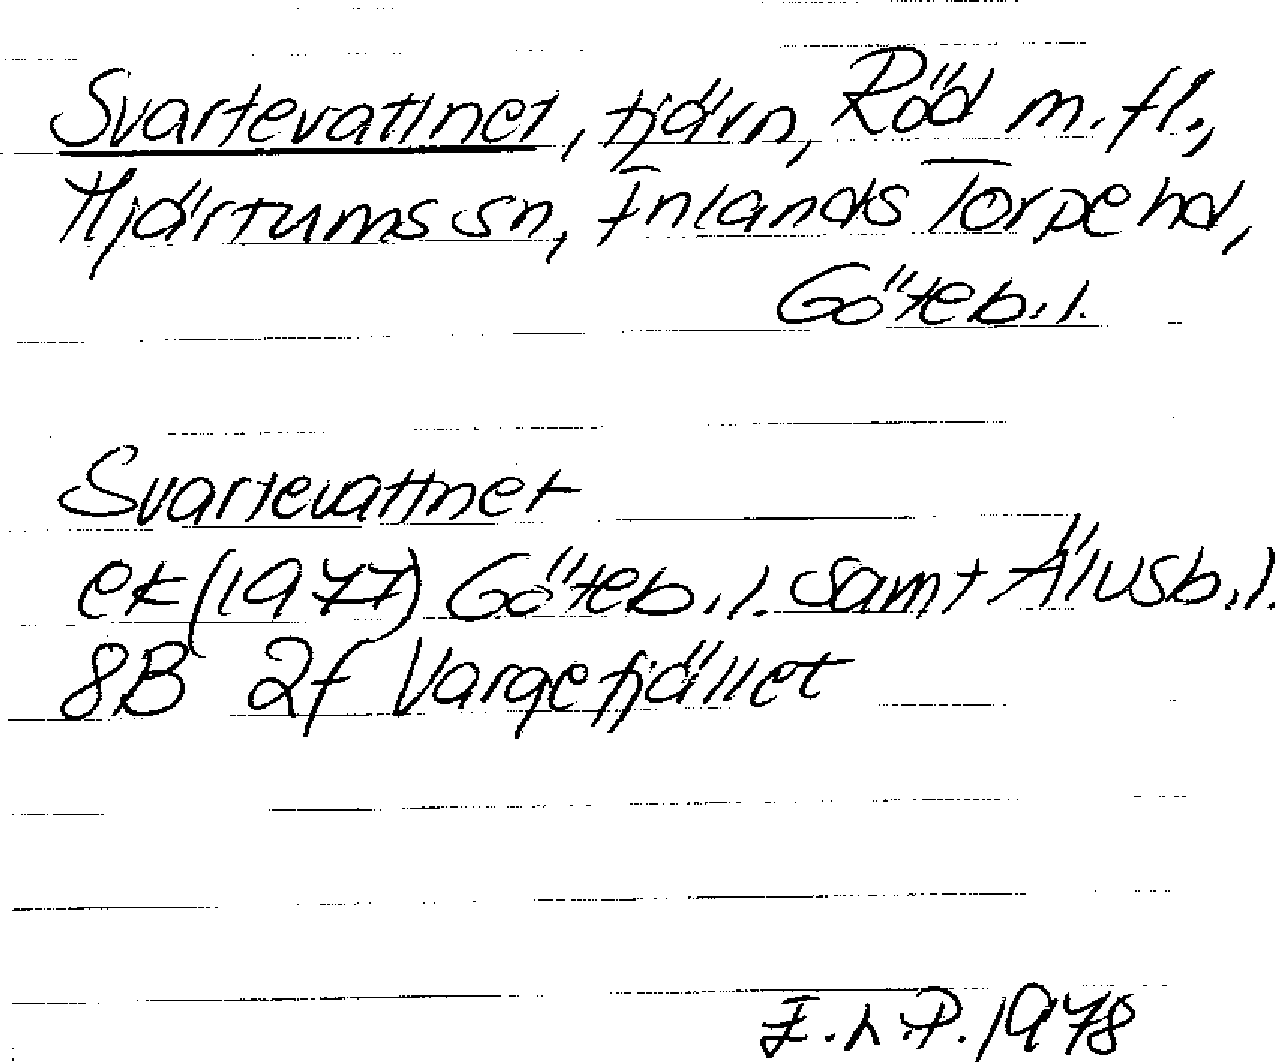 Svartevattnet, tjärn, Röd m.fl.,
Hjärtums sn, Inlands Torpe hd,
Göteb.l.
Svartevattnet
ek (1977) Göteb.l. samt Älvsb.l.
8B 2f Vargefjället
1978